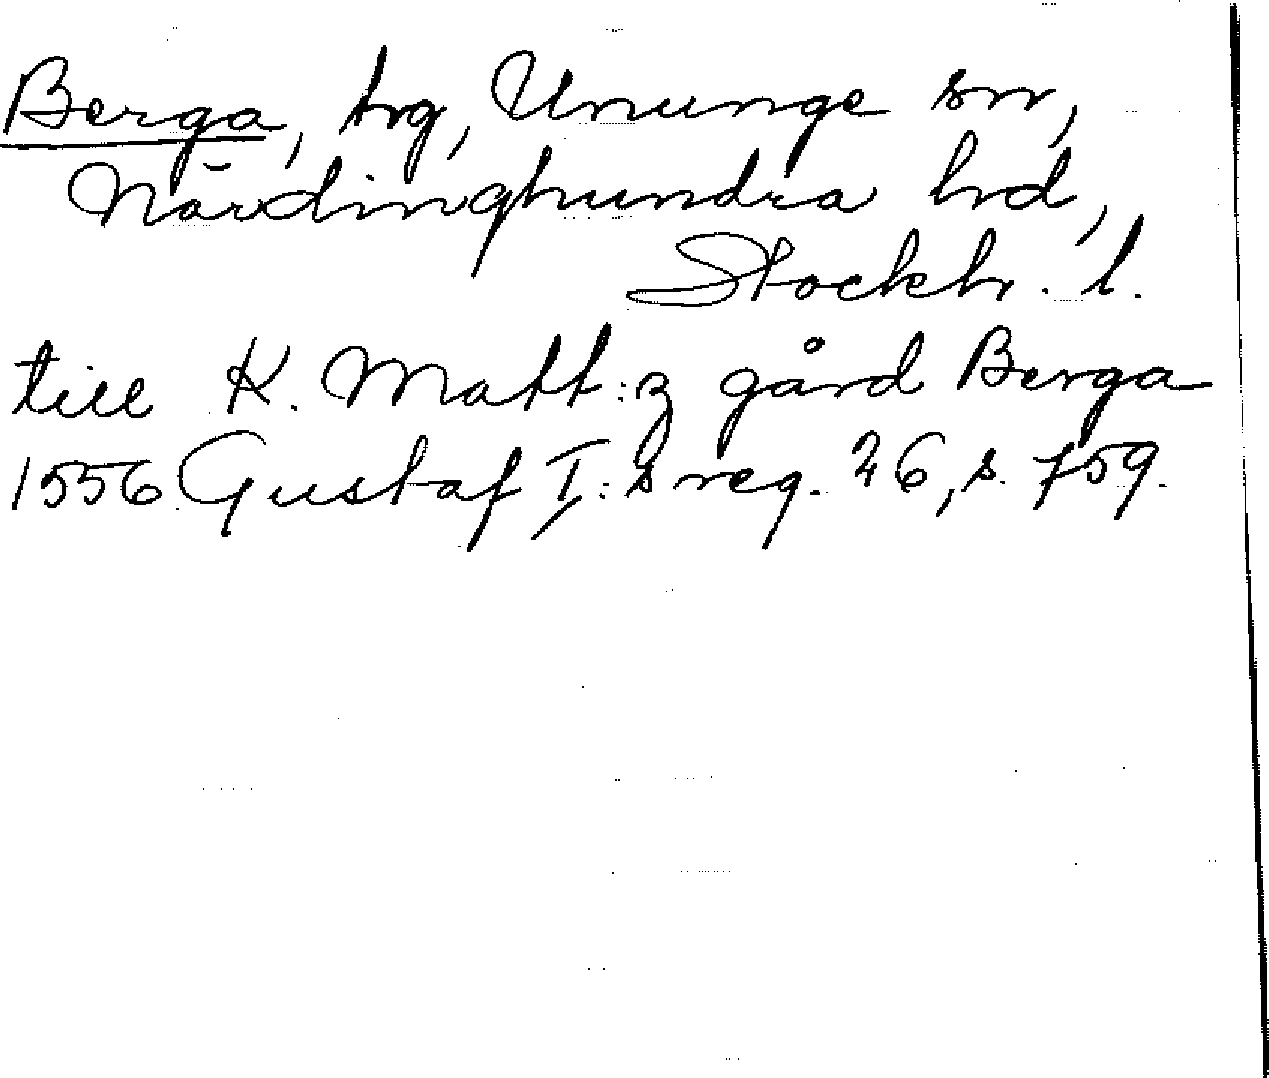 Berga, hg, Ununge sn,
Närdinghundra hd,
Stockh. l.
till K. Matt:z gård Berga
1556 Gustaf I:s reg. 26, s. 759.